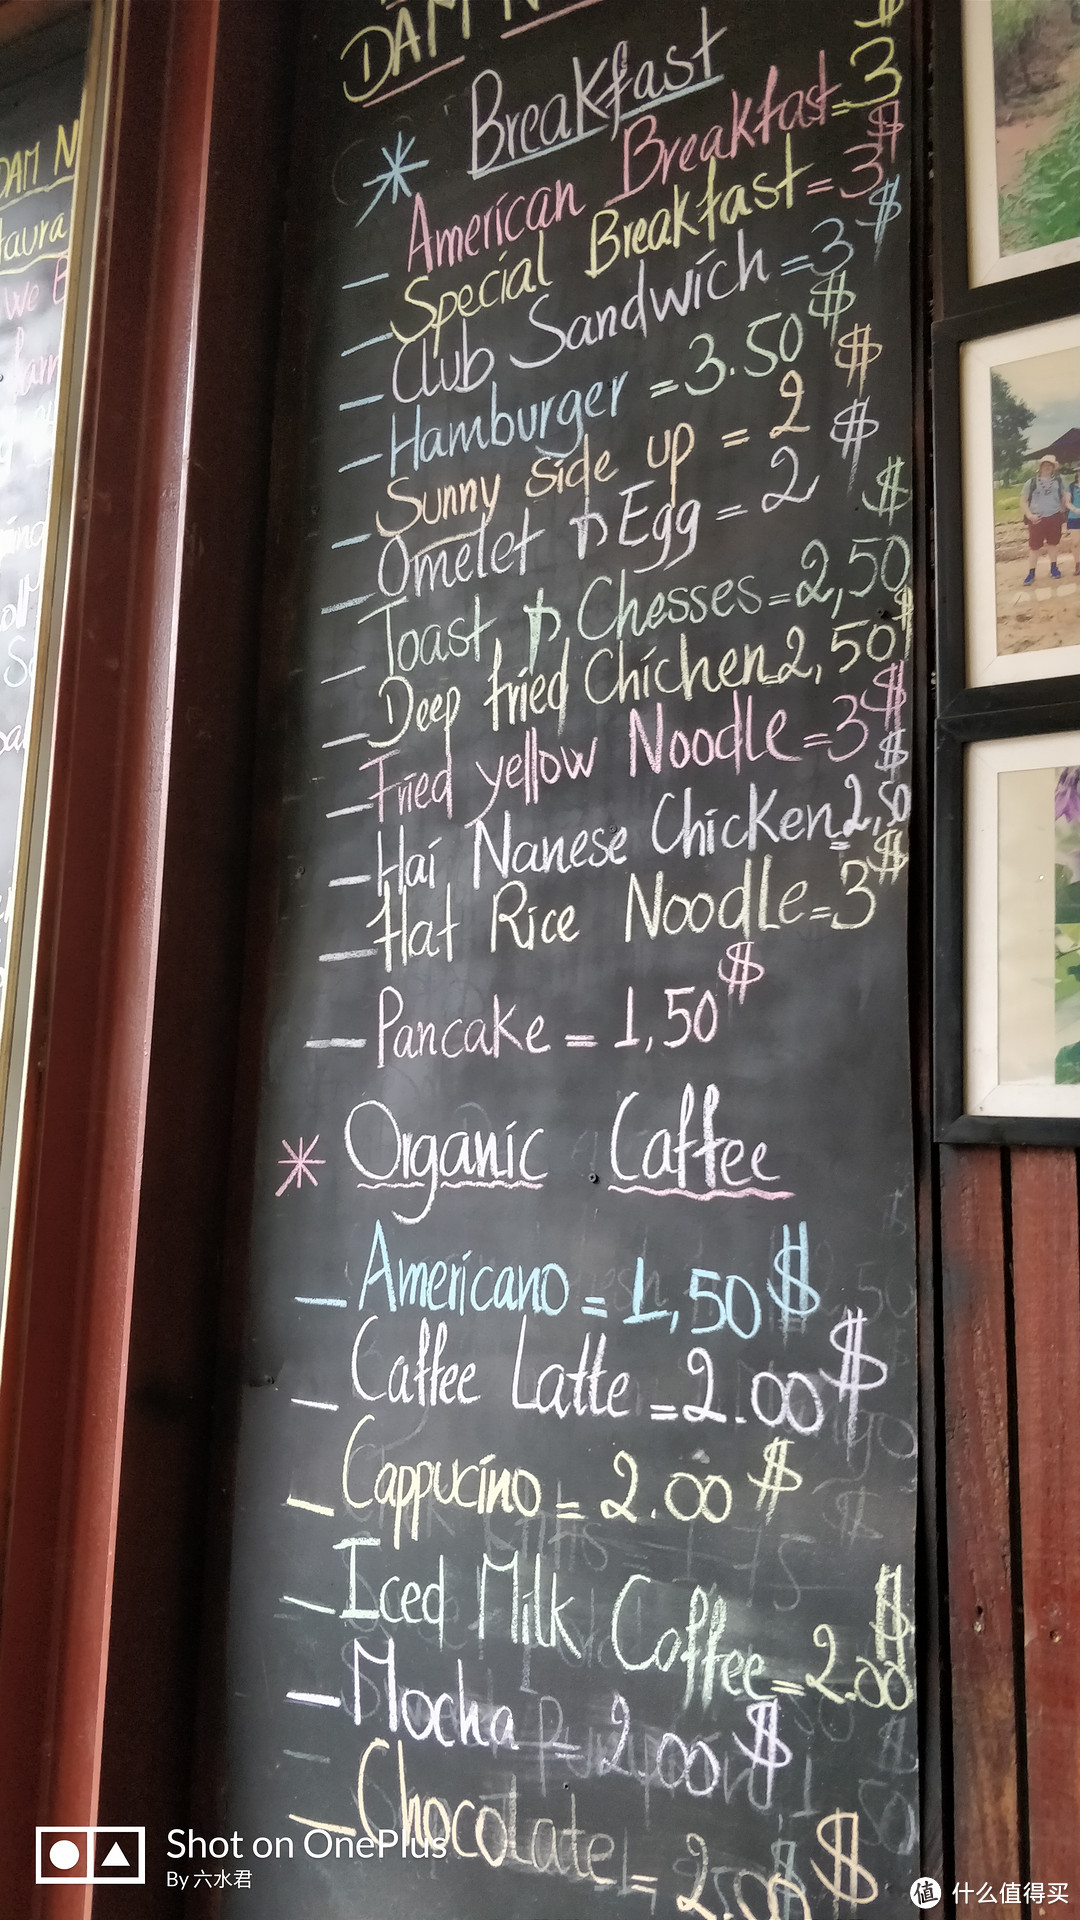 DAM N
Breakfast
American Breakfast = 3 $
Special Breakfast = 3 $
Club Sandwich = 3 $
Hamburger = 3.50 $
Sunny side up = 2 $
Omelet Egg = 2 $
Toast Chesses = 2,50 $
Deep fried Chichen = 2,50 $
Fried yellow Noodle = 3 $
Hai Nanese Chicken = 2,50 $
Flat Rice Noodle = 3 $
Pancake = 1,50 $
Organic Caffee
Americano = 1,50 $
Caffee Latte = 2.00 $
Cappucino = 2.00 $
Iced Milk Coffee = 2.00 $
Mocha = 2.00 $
Chocolate = 2.00 $
DAM N
taura
we B
Shot on OnePlus
By 六水君
值 什么值得买